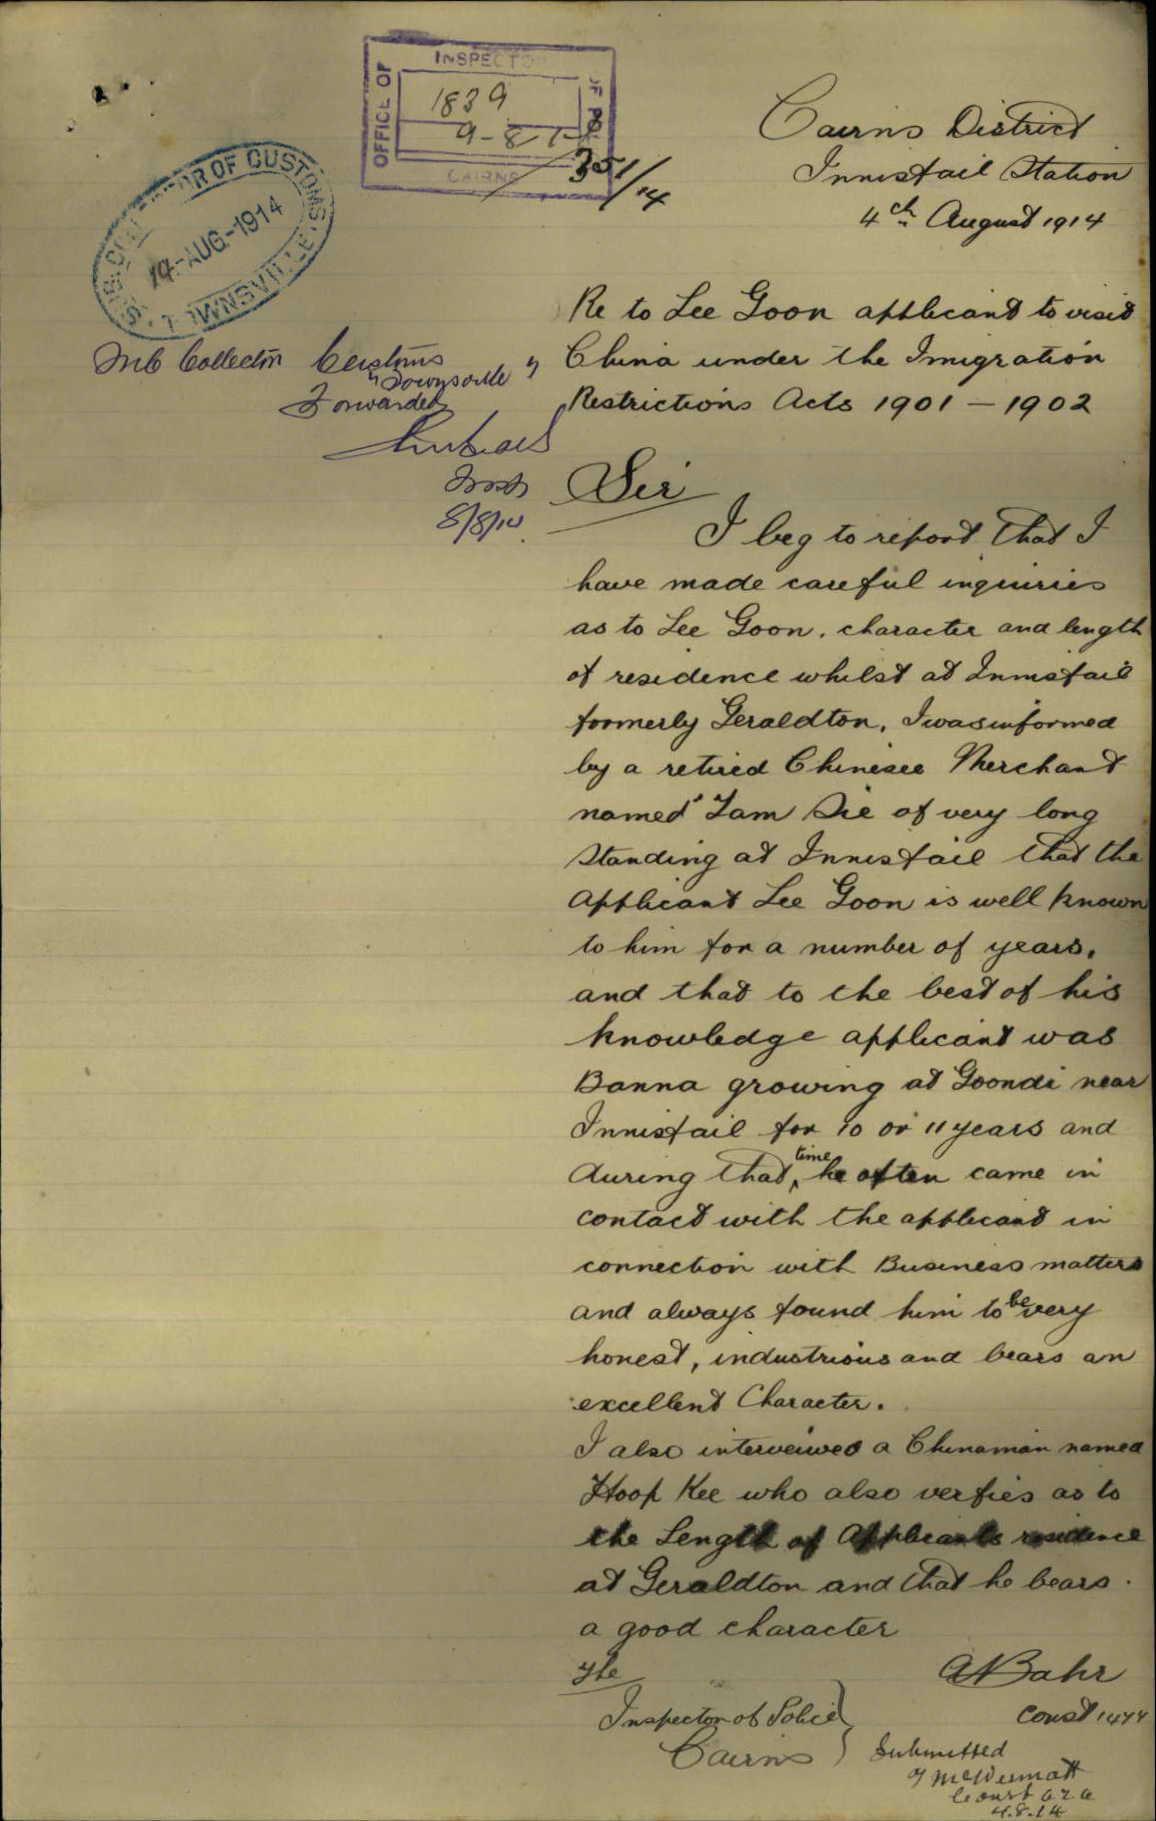 OFFICE OF INSPECTOR OF PO
1839
9-8-1
CAIRNS
351/14
SUB-COLLECTOR OF CUSTOMS
14-AUG-1914
TOWNSVILLE
Cairns District
Innisfail Station
4th August 1914
Re to Lee Goon applicant to visit
China under the Imigration
Restrictions Acts 1901 - 1902
Sub Collector Customs
"Townsville"
Forwarded
8/8/14
Sir
I beg to report that I
have made careful inquiries
as to Lee Goon, character and length
of residence whilst at Innisfail
formerly Geraldton, I was informed
by a retired Chinese Merchant
named Tam Sie of very long
standing at Innisfail that the
applicant Lee Goon is well known
to him for a number of years,
and that to the best of his
knowledge applicant was
Banna growing at Goondi near
Innisfail for 10 or 11 years and
during that time he often came in
contact with the applicant in
connection with Business matters
and always found him to be very
honest, industrious and bears an
excellent Character.
I also interveiwed a Chinaman named
Hoop Kee who also verfies as to
the Length of Applicants residence
at Geraldton and that he bears
a good character
The
Inspector of Police
Cairns
A Bahr
Const 1477
Submitted
McDermott
Const
4.8.14